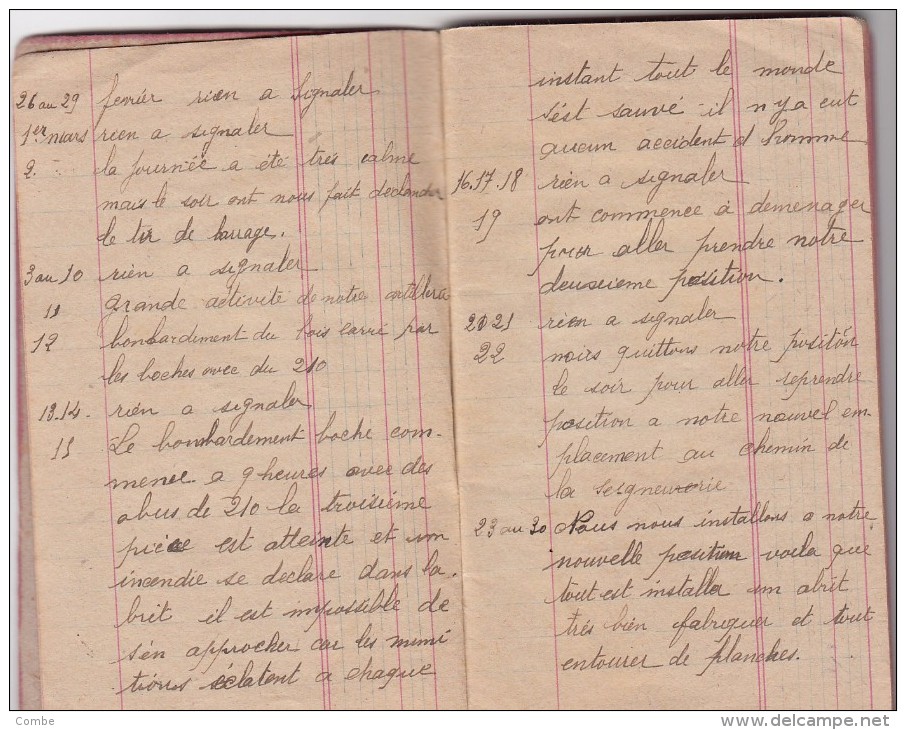 26 au 29 fevrier rien a Signaler
1er mars rien a signaler
2. la journée a été trés calme
mais le soir ont nous fait declancher
le tir de barrage.
3 au 10 rien a signaler
11 grande activité de notre artillerie
12 bombardement du bois carré par
les boches avec du 210
13.14. rien a signaler
15 Le bombardement boche com-
mence a 9 heures avec des
obus de 210 la troisiéme
piéce est atteinte et un
incendie se declare dans la.
brit il est impossible de
s'én approcher car les muni
tions éclatent a chaque
instant tout le monde
s'ést sauvé il n'y a eut
aucun accident d'homme
16.17.18 rien a signaler
19 ont commence à demenager
pour aller prendre notre
deuxieme position.
20 21 rien a signaler
22 nous quittons notre position
le soir pour aller reprendre
position a notre nouvel em-
placement au chemin de
la Seigneurerie
23 au 30 Nous nous installons a notre
nouvelle position voila que
tout est installer un abrit
trés bien fabriquer et tout
entourer de planches.
Combe
www.delcampe.net